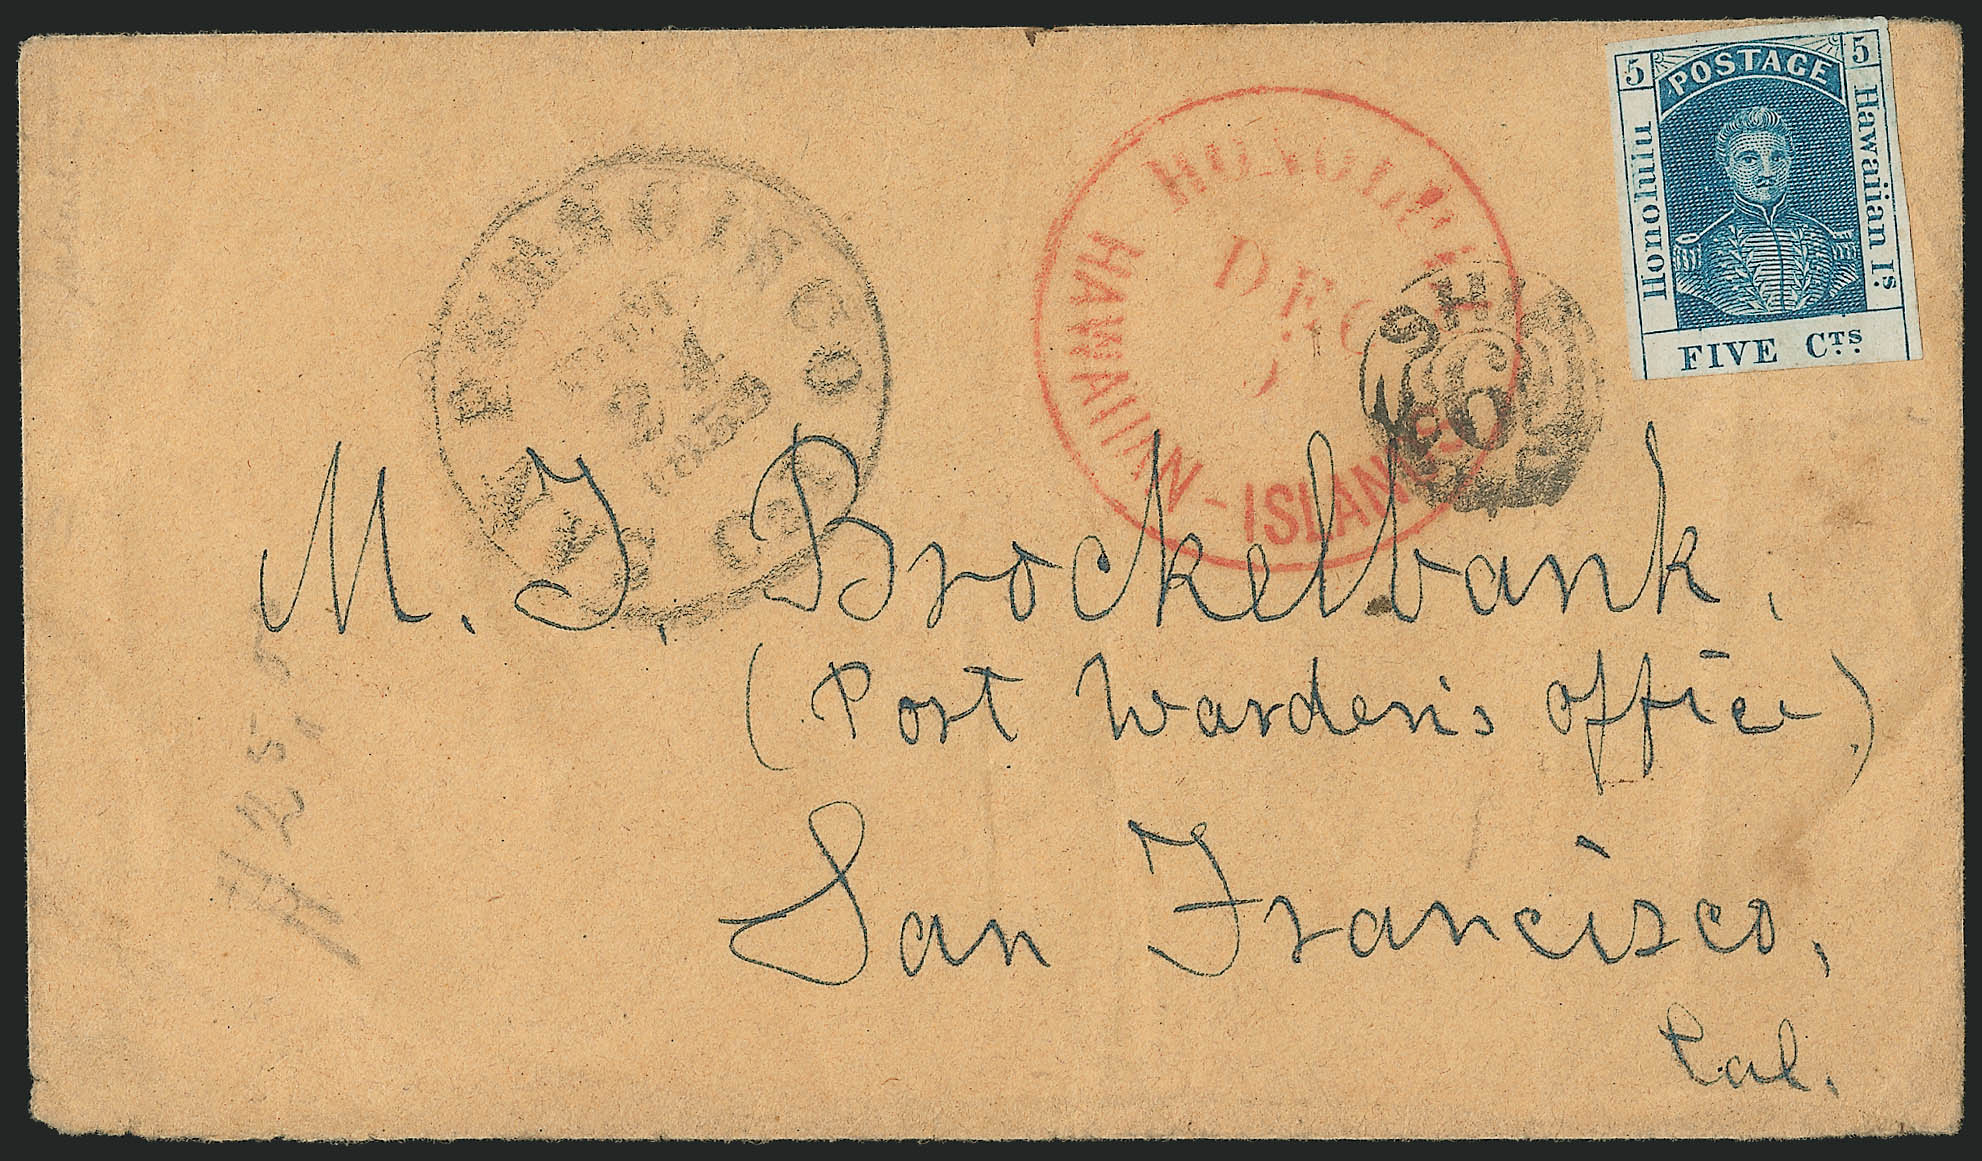 5 POSTAGE 5
Honolulu
Hawaiian Is.
FIVE Cts.
HONOLULU
DEC
HAWAIIAN - ISLANDS
SHIP
6
FRANCISCO
24
M. J. Brockelbank,
(Port Warden's office)
San Francisco,
Cal.